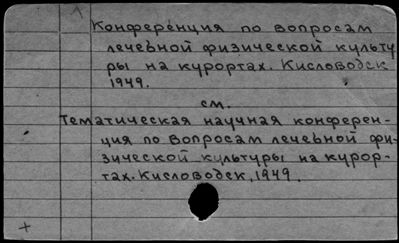 Конференция по вопросам
лечебной физической культу
ры на курортах. Кисловодск
1949.
см.
Тематическая научная конферен-
ция по вопросам лечебной фи-
зической культуры на курор-
тах. Кисловодск, 1949.
+